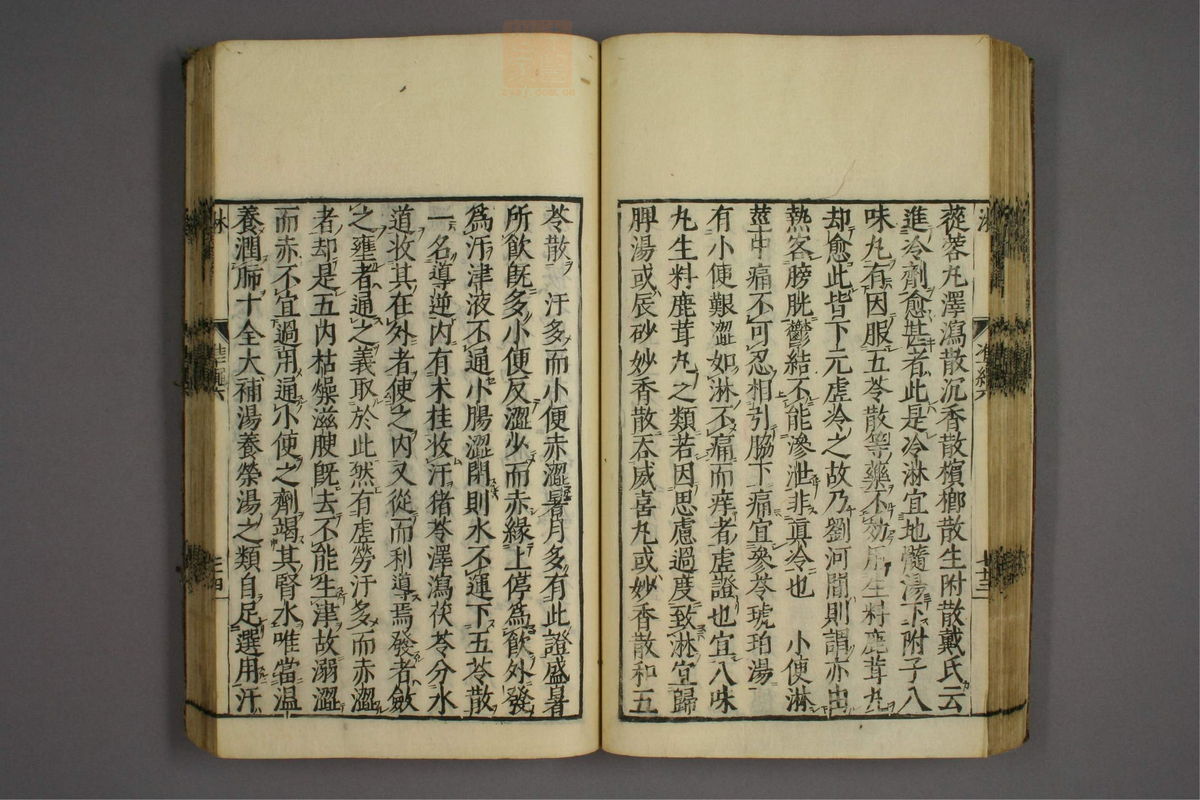 蓯蓉丸澤瀉散沉香散檳榔散生附散戴氏云
進冷劑愈甚者此是冷淋宜地髓湯下附子八
味丸有因服五苓散等藥不効用生料鹿茸丸
却愈此皆下元虛冷之故乃劉河間則謂亦出
熱客膀胱鬱結不能滲泄非眞冷也　小便淋
莖中痛不可忍相引脇下痛宜參苓琥珀湯
有小便艱澀如淋不痛而痒者虛證也宜八味
丸生料鹿茸丸之類若因思慮過度致淋宜歸
脾湯或辰砂妙香散吞威喜丸或妙香散和五
苓散　汗多而小便赤澀暑月多有此證盛暑
所飲既多小便反澀少而赤緣上停爲飲外發
爲汗津液不通小腸澀閉則水不運下五苓散
一名導逆内有术桂收汗猪苓澤瀉茯苓分水
道收其在外者使之内又從而利導焉發者斂
之壅者通之義取於此然有虛勞汗多而赤澀
者却是五内枯燥滋腴既去不能生津故溺澀
而赤不宜過用通小便之劑竭其腎水唯當温
養潤肺十全大補湯養榮湯之類自足選用汗
淋